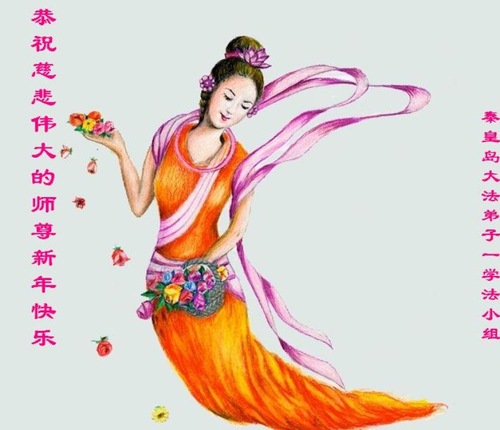 恭祝慈悲伟大的师尊新年快乐
秦皇岛大法弟子一学法小组